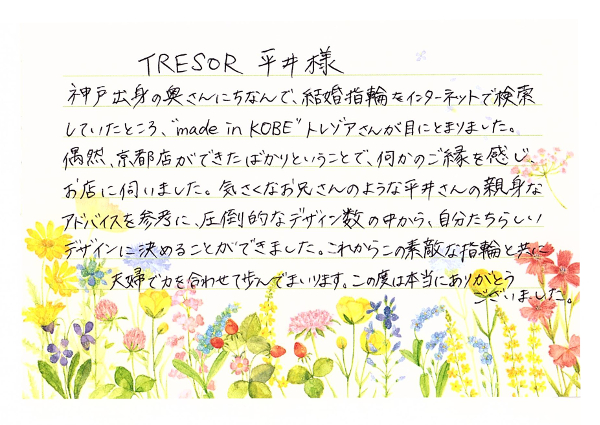 TRESOR 平井様
神戸出身の奥さんにちなんで、結婚指輪をインターネットで検索
していたところ、"made in KOBE"トレゾアさんが目にとまりました。
偶然、京都店ができたばかりということで、何かのご縁を感じ、
お店に伺いました。気さくなお兄さんのような平井さんの親身な
アドバイスを参考に、圧倒的なデザイン数の中から、自分たちらしい
デザインに決めることができました。これからこの素敵な指輪と共に
夫婦で力を合わせて歩んでまいります。この度は本当にありがとう
ございました。